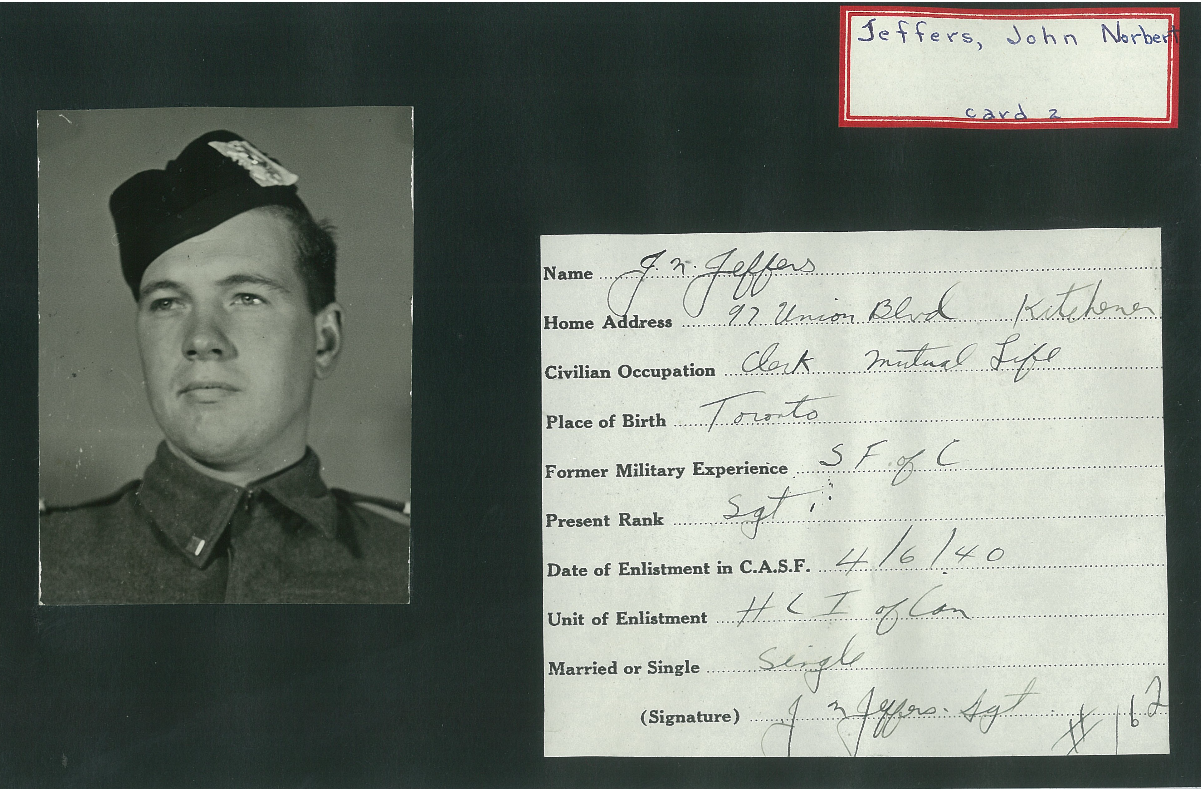 Jeffers, John Norbert
card 2
Name J. N. Jeffers
Home Address 97 Union Blvd Kitchener
Civilian Occupation Clerk Mutual Life
Place of Birth Toronto
Former Military Experience S F of C
Present Rank Sgt
Date of Enlistment in C.A.S.F. 4/6/40
Unit of Enlistment H L I of Can
Married or Single Single
(Signature) J N Jeffers. Sgt # 162